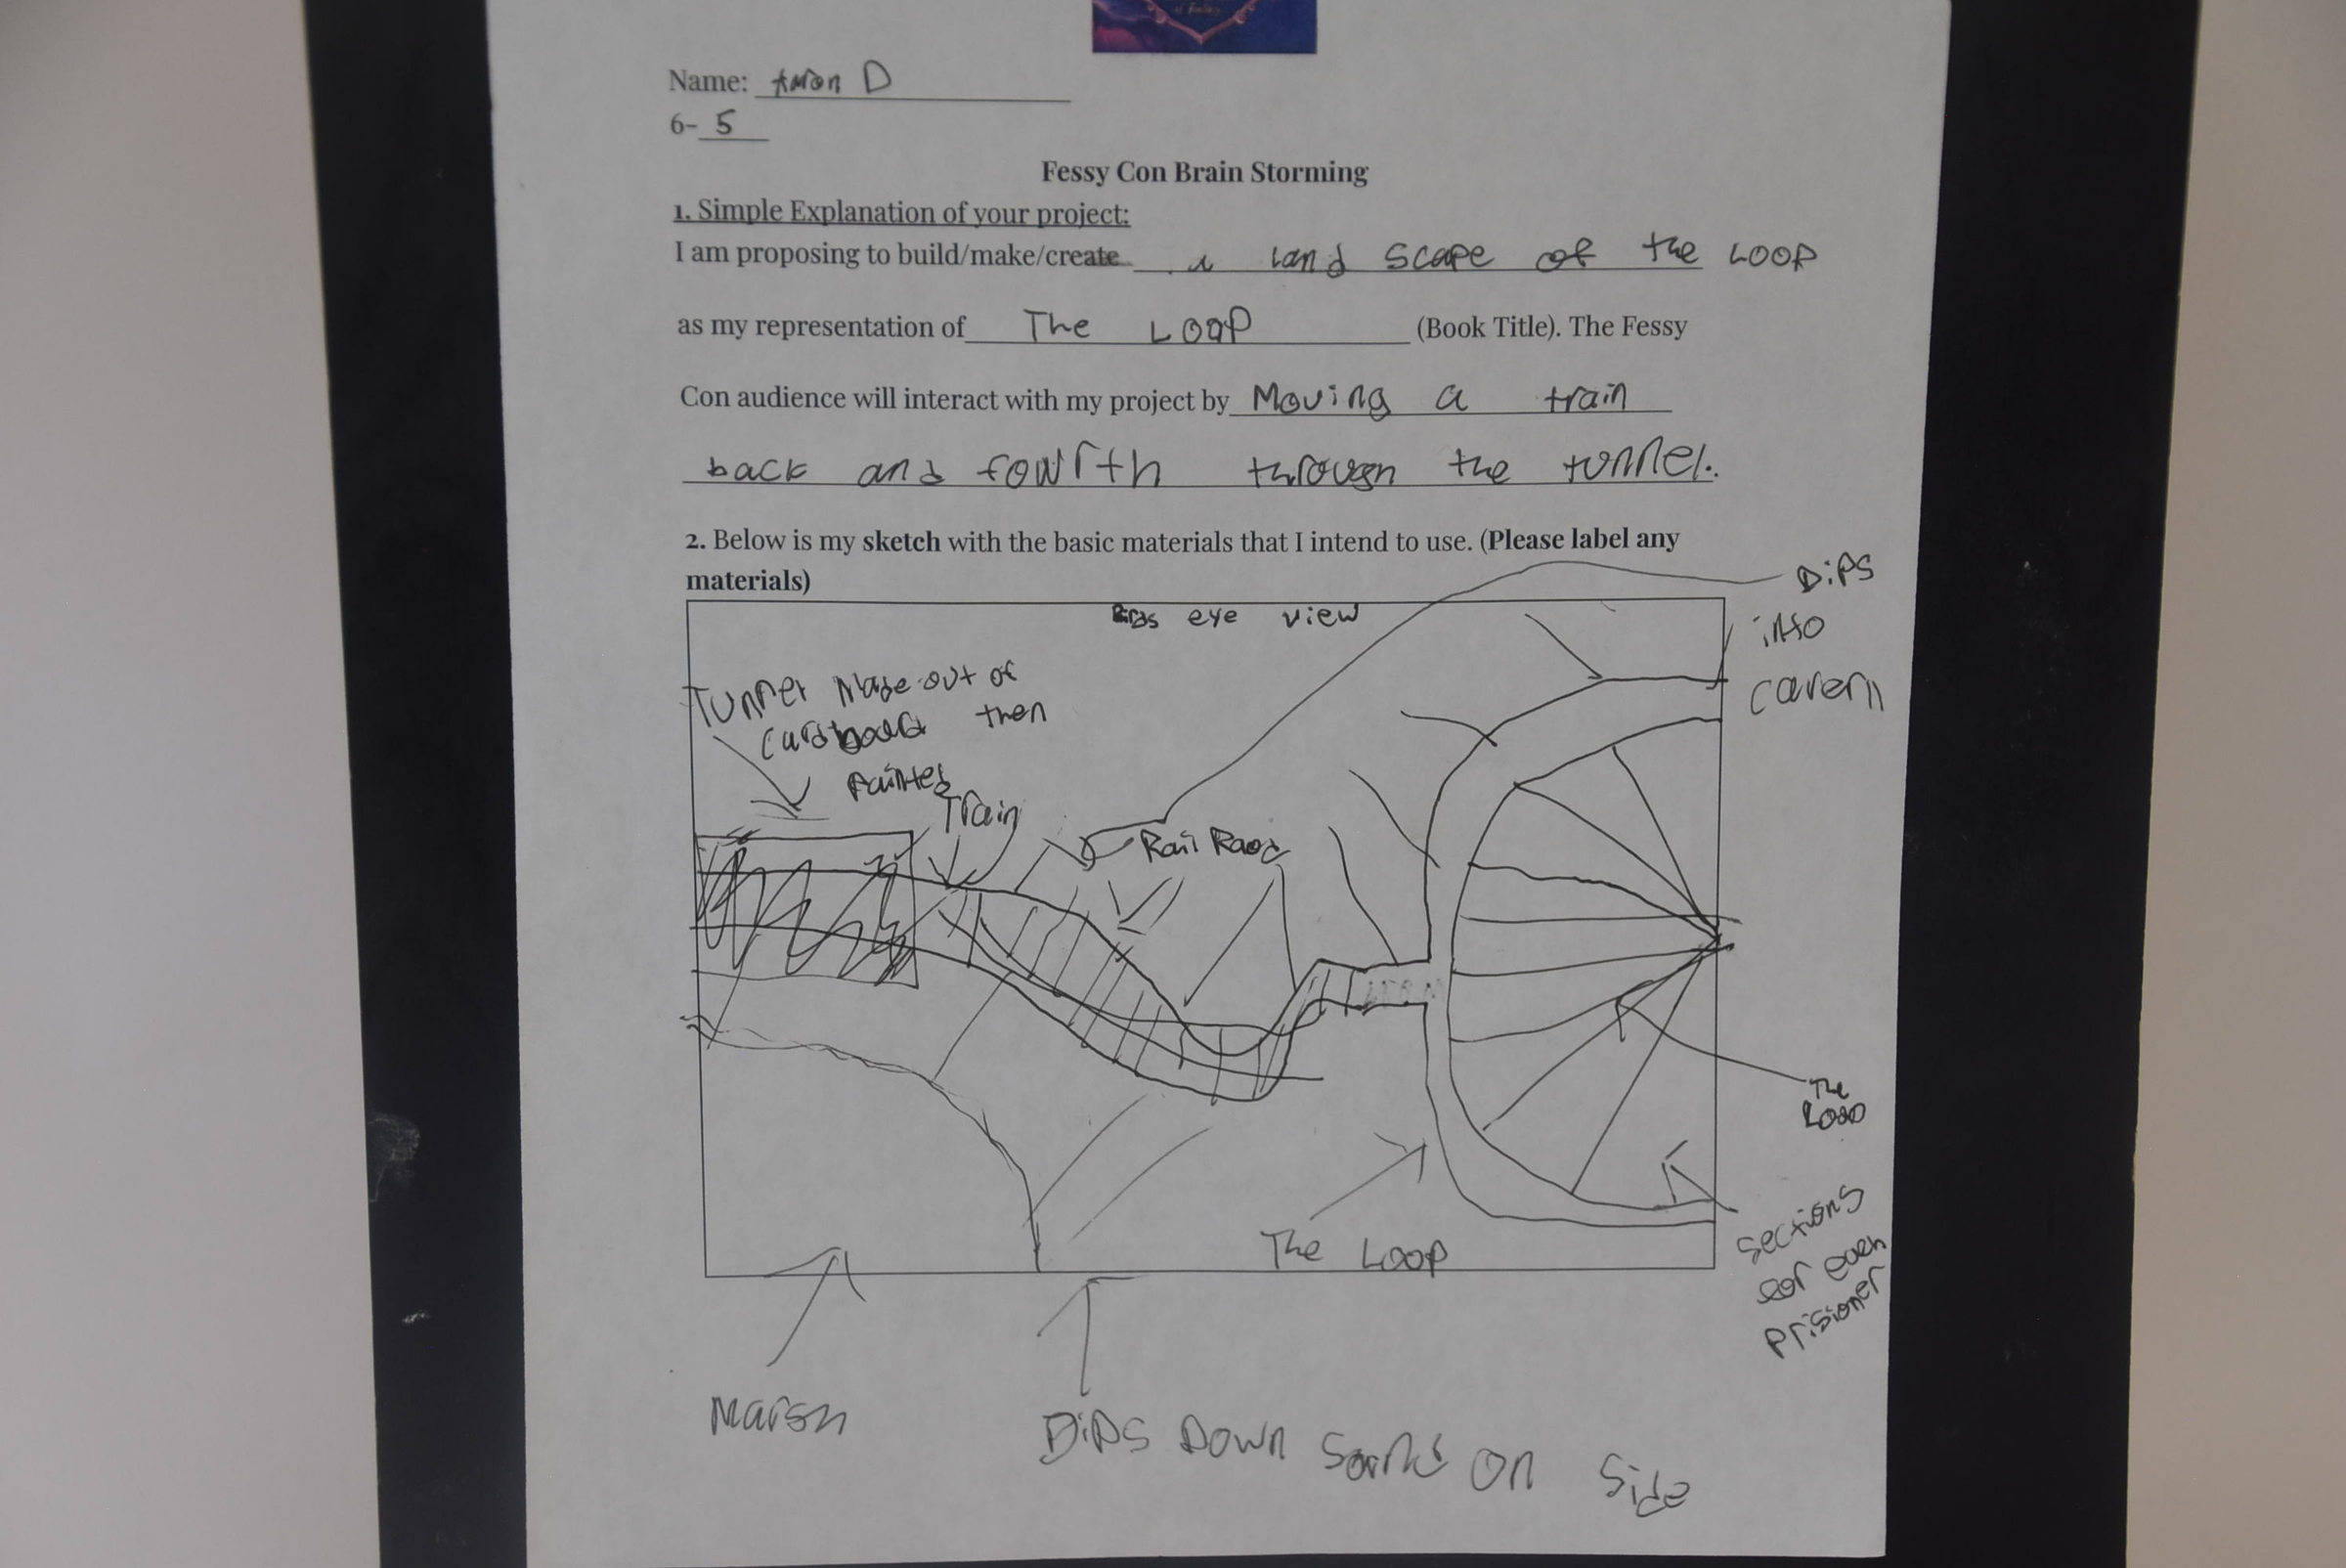 of Fessler
Name: Amon D
6- 5
Fessy Con Brain Storming
1. Simple Explanation of your project:
I am proposing to build/make/create a land scape of the LOOP
as my representation of The LOOP (Book Title). The Fessy
Con audience will interact with my project by Moving a train
back and fowrth through the tunnel.
2. Below is my sketch with the basic materials that I intend to use. (Please label any
materials)
Dips
into
cavern
Birds eye view
Tunnel Made out of
cardboard then
Painted
Train
Rail Raod
The
Loop
The Loop
sections
for each
prisioner
Marsh
Dips Down on Side